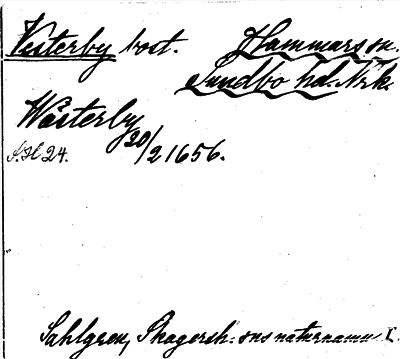 Vesterby bost. Hammars sn.
Sundbo hd. Nrk.
Wästerby 20/2 1656.
S. H. 24.
Sahlgren, Skagersh. sns naturnamn I.